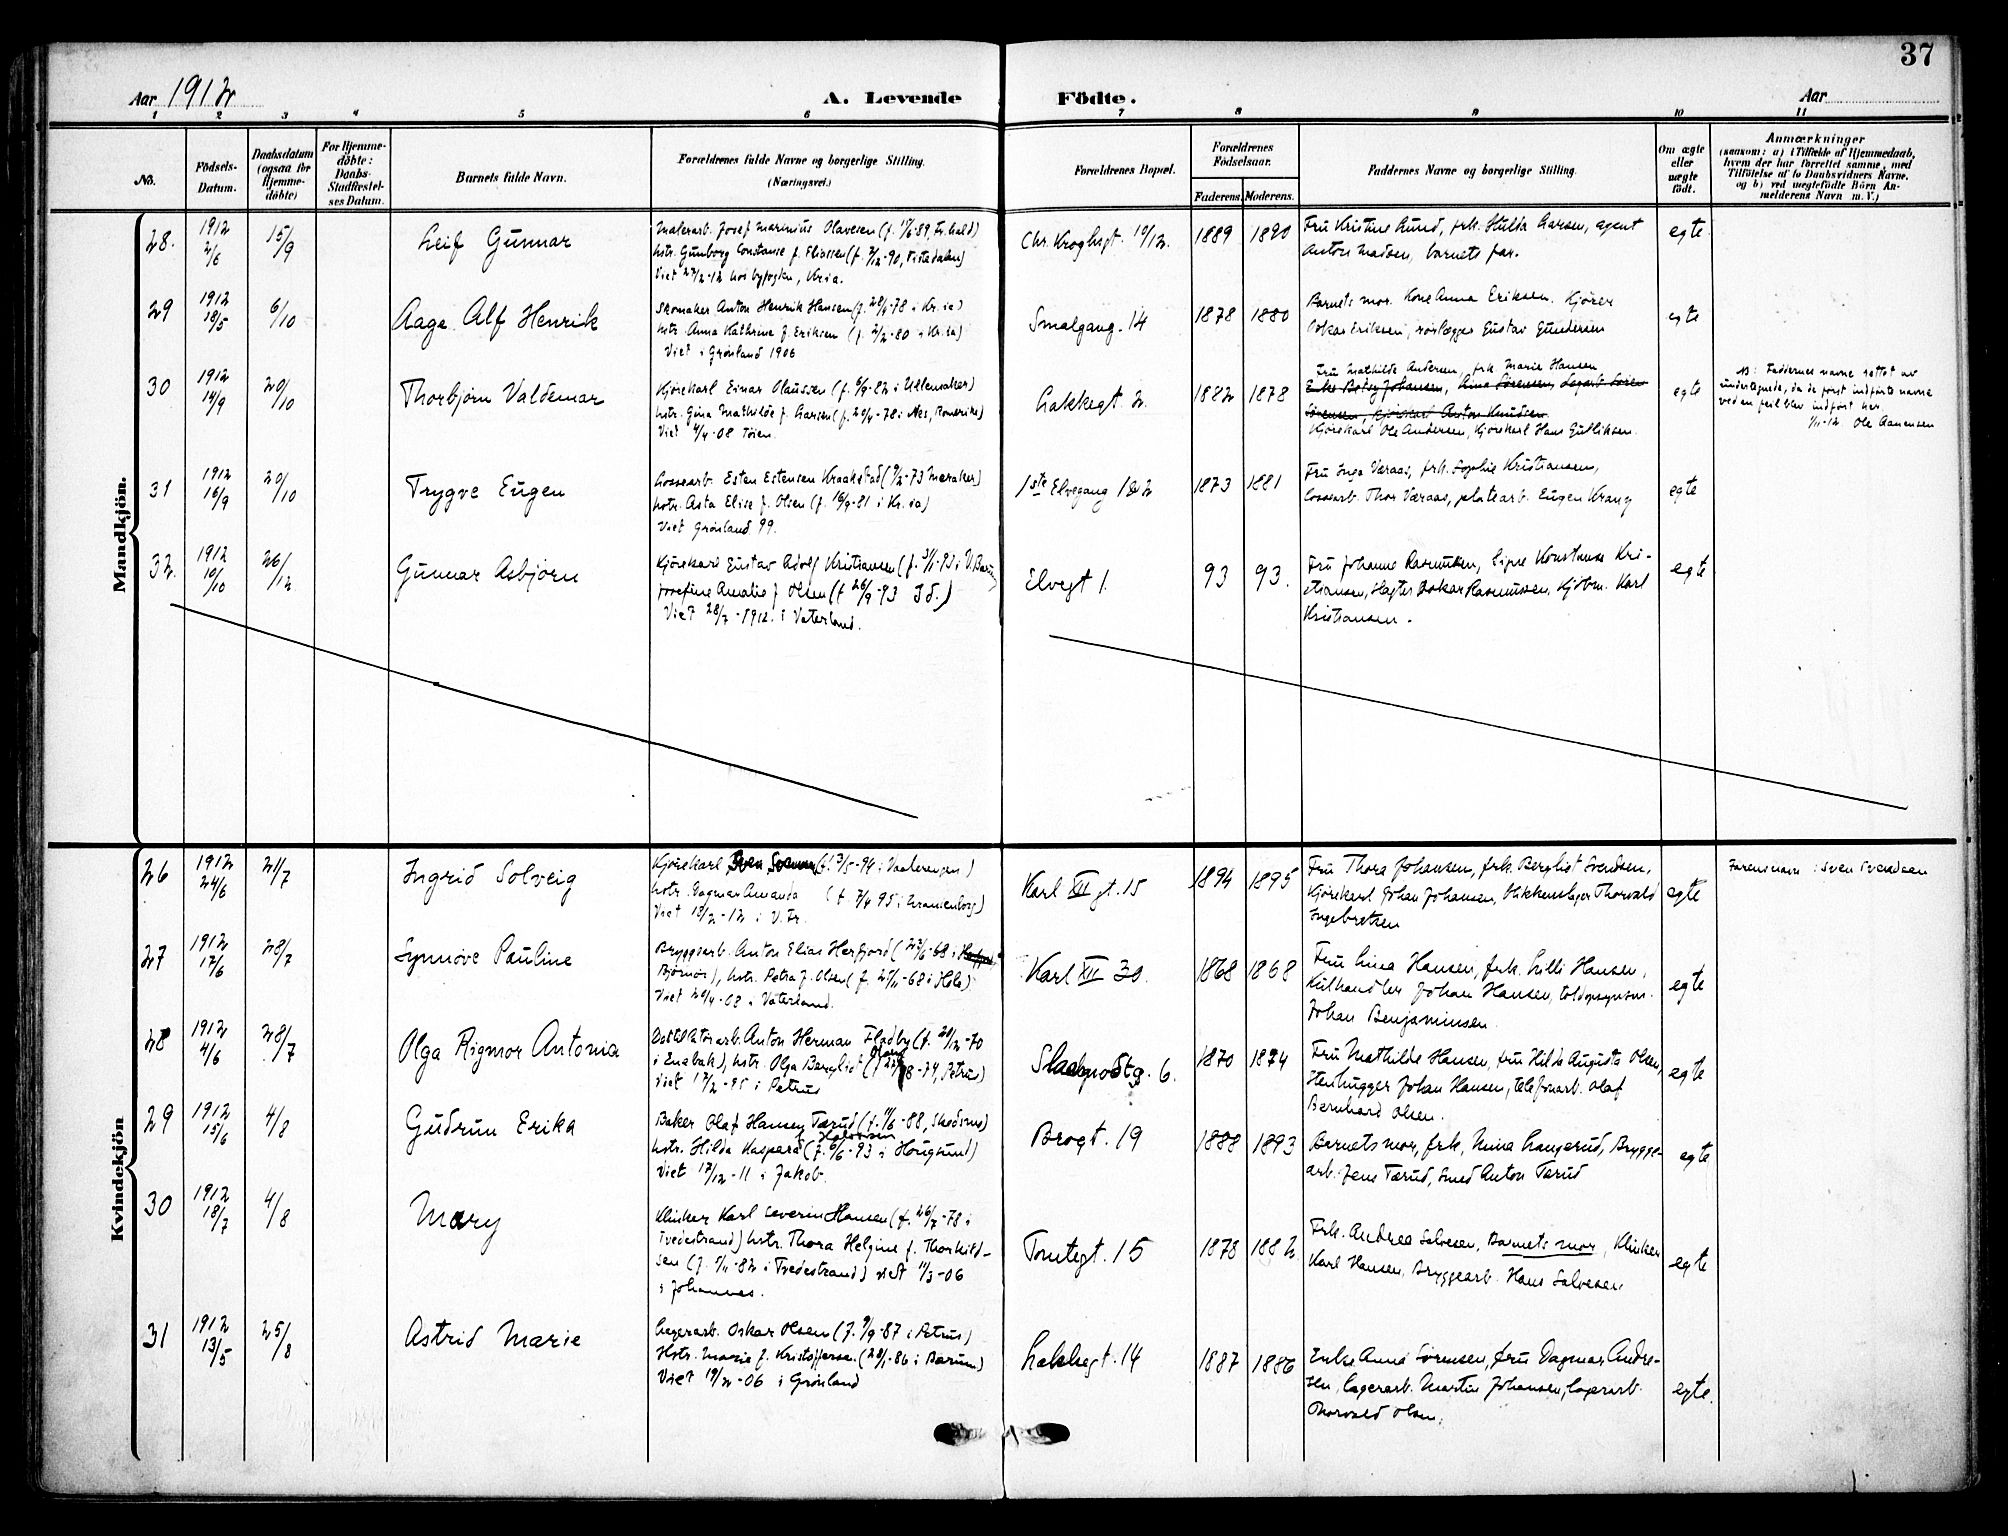 37
Aar 1912
A. Levende Födte.
Aar
1 2 3 4 5 6 7 8 9 10 11
No.
Födsels-Datum.
Daabsdatum (ogsaa for Hjemme-döbte)
For Hjemme-döbte: Daabs-Stadfæstel-ses Datum.
Barnets fulde Navn.
Forældrenes fulde Navne og borgerlige Stilling.
(Næringsvei.)
Forældrenes Bopæl.
Forældrenes Födselsaar.
Faderens. Moderens.
Faddernes Navne og borgerlige Stilling.
Om ægte eller uægte födt.
Anmærkninger
(saasom: a) i Tilfælde af Hjemmedaab,
hvem der har forrettet samme, med
Tilföielse af to Daabsvidners Navne.
og b) ved uægtefödte Börn An-
melderens Navn m. V.)
Mandkjön.
28. 1912 2/6 15/9 Leif Gunnar
Malerarb. Josef Marinius Olavesen (f. 15/6-89, Fr.hald)
hstr. Gunborg Constanse f. Eliassen (f. 7/12-90, Tistedalen)
Viet 27/2-12 hos byfogden, Kr.ia.
Chr. Kroghsgt. 10/12. 1889 1890
Fru Kristine Lund, frk. Hulda Larsen, agent
Anton Madsen, barnets far.
egte
29 1912 18/5 6/10 Aage Alf Henrik
Skomaker Anton Henrik Hansen (f. 28/4-78 i Kr.ia)
hstr. Anna Kathrine f. Eriksen (f. 2/2-80 i Kr.ia)
Viet i Grønland 1906
Smalgang. 14 1878 1880
Barnets mor. Kone Anna Eriksen. Kjører
Oskar Eriksen, rørlægger Gustav Gundersen
egte
30 1912 14/9 20/10 Thorbjørn Valdemar
Kjørekarl Einar Olaussen (f. 6/9-82 i Ullensaker)
hstr. Gina Mathilde f. Larsen (f. 20/4-78 i Nes, Romerike)
Viet 4/4-08 Tøien.
Lakkegt. 2. 1882 1878
Fru Mathilde Andersen, frk. Marie Hansen
Enke Boley Johansen, Lina Sørensen, Lagarb. Søren
Sørensen, Kjørekarl Anton Knudsen
Kjørekarl Ole Andersen, Kjørekarl Hans Gulliksen.
egte
NB: Faddernes navne rettet av
undertegnede, da de først indførte navne
ved en feil blev indført her.
1/11-12 Ole Aanensen
31 1912 16/9 20/10 Trygve Eugen
Lossearb. Esten Estensen Kraakstad (9/2-73 Meraker)
hstr. Asta Elise f. Olsen (f. 16/9-81 i Kr.ia)
Viet Grønland 99.
1ste Elvegang 12 1873 1881
Fru Inga Væraas, frk. Sophie Kristiansen,
Lossarb. Thor Væraas, platearb. Eugen Krang
egte
32. 1912 10/10 26/12 Gunnar Asbjørn
Kjørekarl Gustav Adolf Kristiansen (f. 31/1-93 i V. Bærum)
Josefine Amalie f. Olsen (f 26/9-93 Id.)
Viet 28/7-1912. i Vaterland.
Elvegt 1. 93 93.
Fru Johanne Rasmussen, Signe Konstanse Kri-
stiansen, Slagter Oskar Rasmussen, Kjøbm. Karl
Kristiansen.
egte
Kvindekjön
26 1912 24/6 21/7 Ingrid Solveig
Kjørekarl (f. 13/5-94 i Vaalerengen)
hstr. Dagmar Amanda (f 7/4 95 i Uranienborg)
Viet 13/2-12 i V. Fr.
Karl XII gt. 15 1894 1895
Fru Thora Johansen, frk. Bergliot Svendsen,
Kjørekarl Johan Johansen, Blikkenslager Thorvald
Ingebretsen
egte
Farens navn: Sven Svendsen
27 1912 17/6 28/7 Synnøve Pauline
Bryggearb. Anton Elias Herfjord (23/6-68 i
Bjørnør), hstr. Petra f. Olsen (f. 27/11-68 i Hole)
Viet 20/4-08 i Vaterland.
Karl XII 30. 1868 1868
Fru Lina Hansen, frk. Lilli Hansen,
Kulhandler Johan Hansen, toldopsynsm.
Johan Benjaminsen.
egte
28 1912 4/6 28/7 Olga Rigmor Antonia
Destilatørarb. Anton Herman Flodby (f. 20/12-70
i Enebak), hstr. Olga Bergliot (f 8-74, Petrus)
Viet 17/2-95 i Petrus
Stadsporstg. 6. 1870 1874
Fru Mathilde Hansen, fru Hilda Augusta Olsen,
Stenhugger Johan Hansen, telefonarb. Olaf
Bernhard Olsen.
egte
29 1912 15/6 4/8 Gudrun Erika
Baker Olaf Hansen Tærud (f. 11/6-88, Skedsmo)
hstr. Hilda Kaspara f. Halvorsen (f. 6/6-93 i Hougsund)
Viet 17/12-11 i Jakob.
Brogt. 19 1888 1893
Barnets mor, frk. Nina Langerud, Brygge-
arb. Jens Tærud, Smed Anton Tærud
egte
30 1912 18/7 4/8 Mary
Klinker Karl Severin Hansen (f. 26/7-78 i
Tvedestrand) hstr. Thora Helgine f. Thorkild-
sen (f. 5/11-82 i Tvedestrand) viet 11/3-06
i Johannes.
Tomtegt. 15 1878 1882.
Frk. Andrea Salvesen, Barnets mor, Klinker
Karl Hansen, Bryggearb. Hans Salvesen
egte
31 1912 13/5 25/8 Astrid Marie
Lagerarb. Oskar Olsen (f. 9/9-87 i Petrus)
Hstr. Marie f. Kristoffersen (28/1-86 i Bærum)
Viet 19/2-06 i Grønland
Lakkegt. 14 1887 1886
Enke Anna Sørensen, fru Dagmar Andre-
sen, Lagerarb. Martin Johansen, lagerarb.
Thorvald Olsen.
egte.